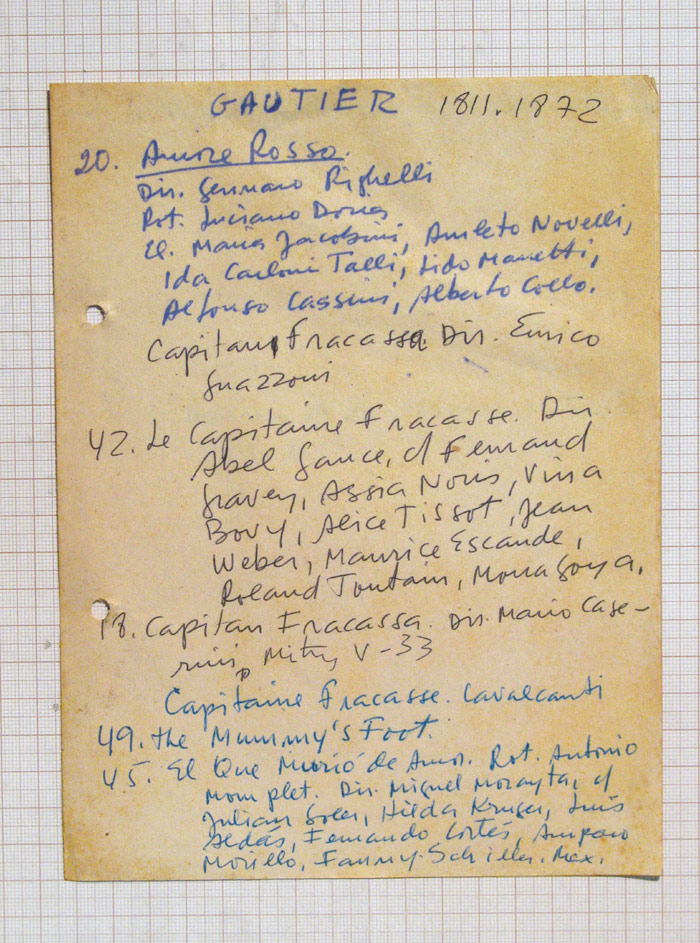 GAUTIER 1811.1872
20. Amore Rosso.
Dir. Gennaro Righelli
Rot. Luciano Doria
El. Maria Jacobini, Amleto Novelli,
Ida Carloni Talli, Lido Manetti,
Alfonso Cassini, Alberto Collo.
Capitan Fracassa Dir. Enrico
Guazzoni
42. Le Capitaine Fracasse. Dir.
Abel Gance, c/ Fernand
Gravey, Assia Noris, Vina
Bovy, Alice Tissot, Jean
Weber, Maurice Escande,
Roland Toutain, Mona Goya.
18. Capitan Fracassa. Dir. Mario Case-
rini, Mitry V-33
Capitaine Fracasse. Cavalcanti
49. the Mummy's Foot.
45. El Que Murió de Amor. Rot. Antonio
Momplet. Dir. Miguel Morayta, c/
Julian Soler, Hilda Kruger, Luis
Aldás, Fernando Cortés, Amparo
Morillo, Fanny Schiller. Mex.